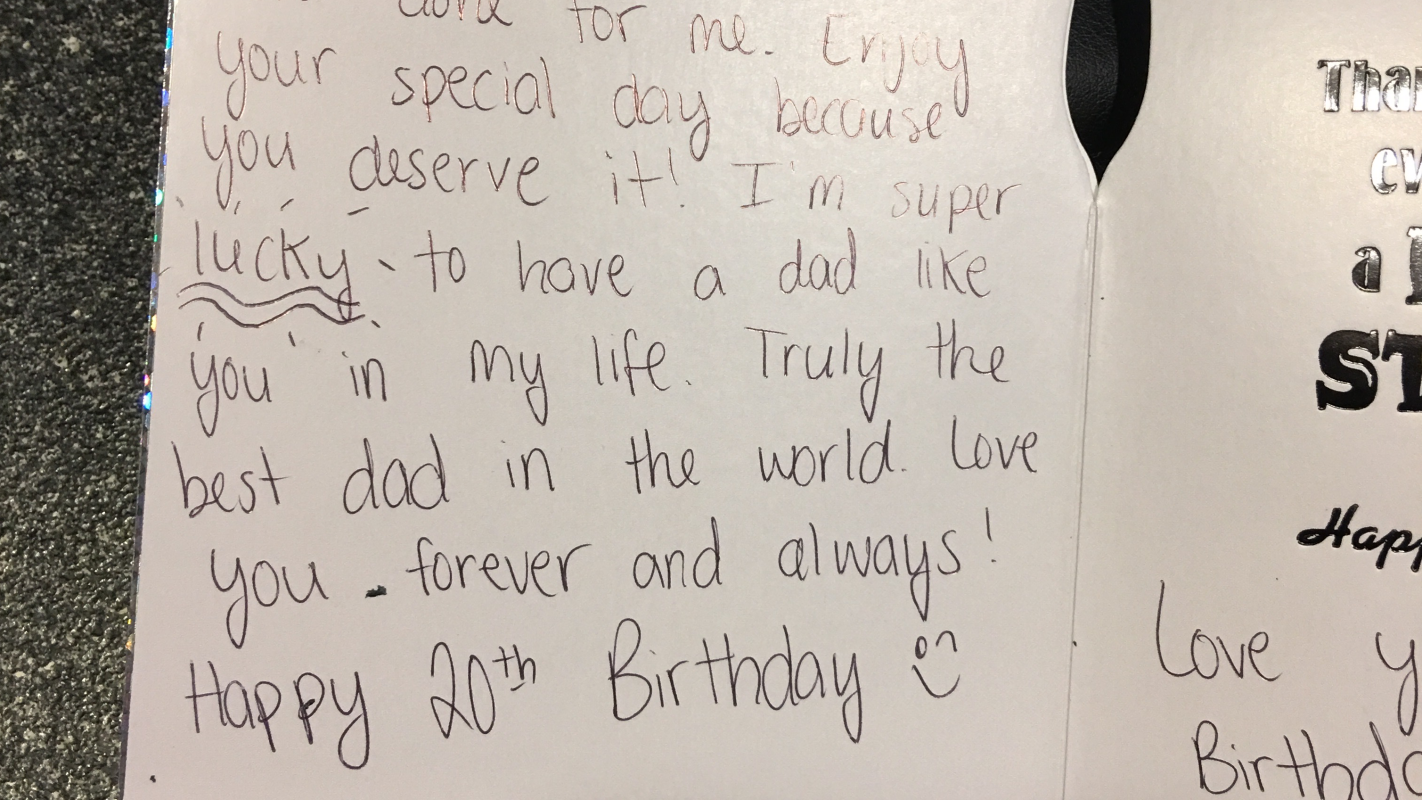 done for me. Enjoy
your special day because
you deserve it! I'm super
lucky to have a dad like
you in my life. Truly the
best dad in the world. Love
you forever and always!
Happy 20th Birthday
a
Love